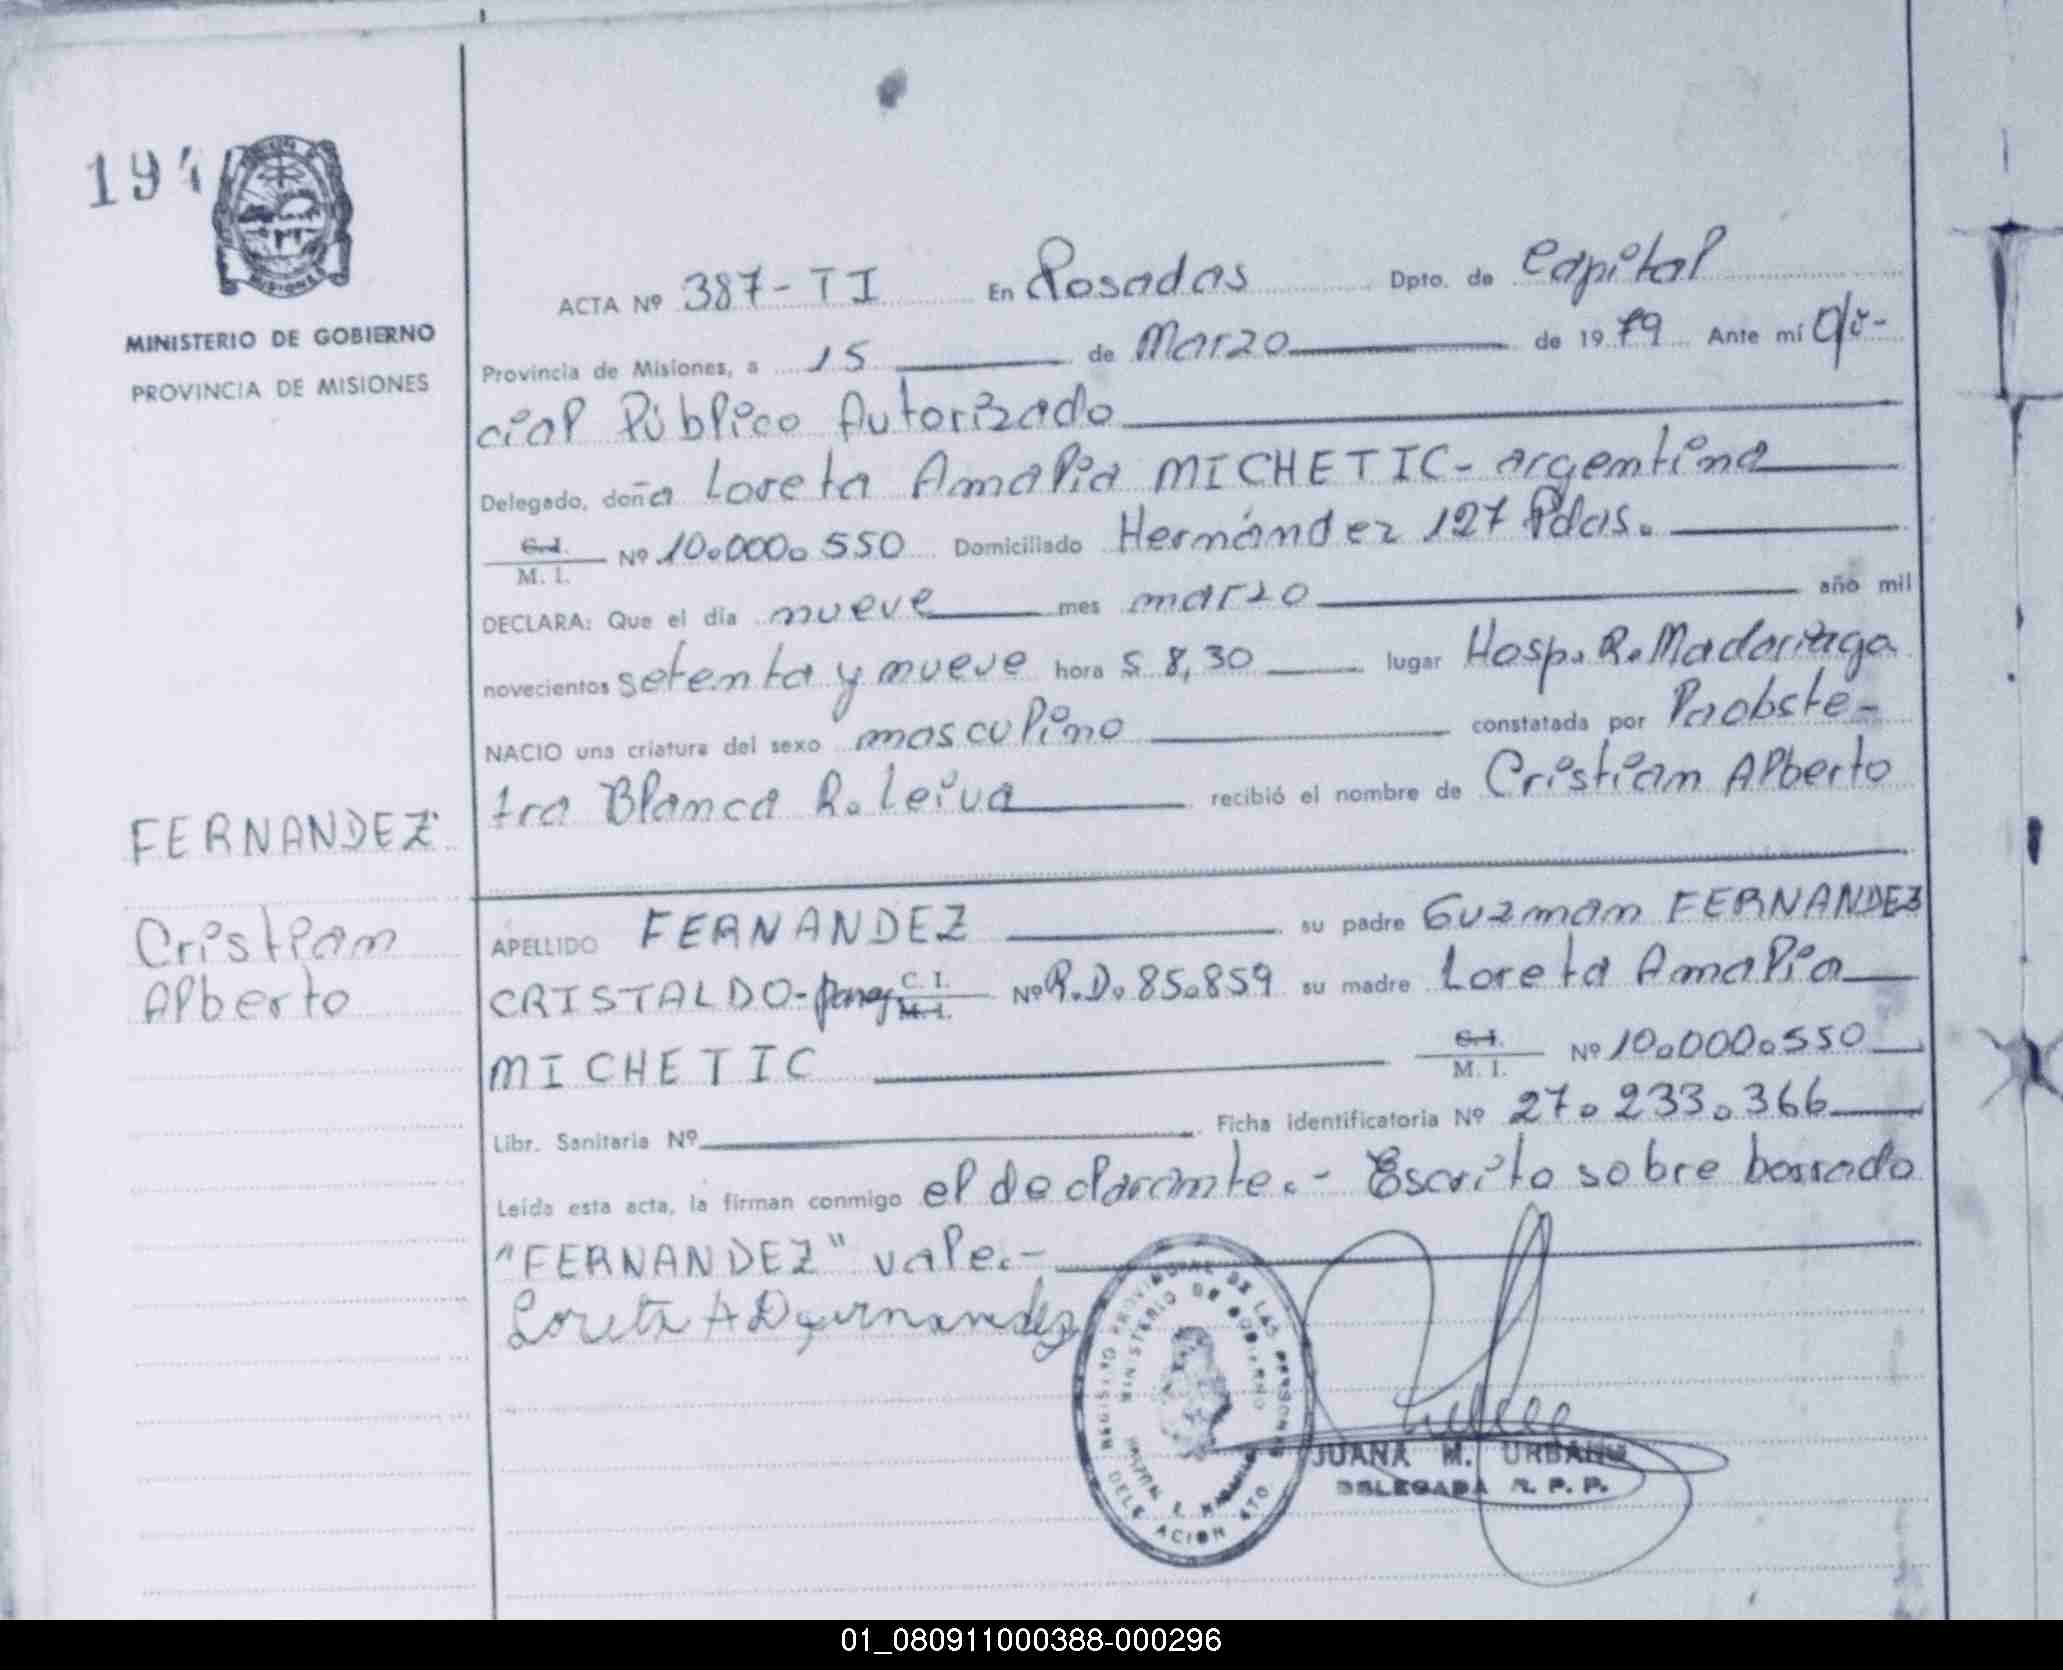 194
MINISTERIO DE GOBIERNO
PROVINCIA DE MISIONES
ACTA Nº 387-TI En Posadas Dpto. de Capital
Provincia de Misiones, a 15 de Marzo de 1979 Ante mí Ofi-
cial Público Autorizado
Delegado, doña Loreta Amalia MICHETIC- argentina
C.I. M. I. Nº 10.000.550 Domiciliado Hernández 127 Pdas.
DECLARA: Que el día nueve mes marzo año mil
novecientos setenta y nueve hora s 8,30 lugar Hosp. R. Madariaga
NACIO una criatura del sexo masculino constatada por Paobste-
tra Blanca R. Leiva recibió el nombre de Cristian Alberto
FERNANDEZ
Cristian
Alberto
APELLIDO FERNANDEZ su padre Guzman FERNANDEZ
CRISTALDO- parag C. I. M. I. Nº R.D. 85.859 su madre Loreta Amalia
MICHETIC C.I. M. I. Nº 10.000.550
Libr. Sanitaria Nº Ficha identificatoria Nº 27.233.366
Leída esta acta, la firman conmigo el declarante.- Escrito sobre borrado
"FERNANDEZ" vale.-
Loreta A D fernandez
REGISTRO PROVINCIAL DE LAS PERSONAS
MINISTERIO DE GOBIERNO
DELEGACION
JUANA M. URBANO
DELEGADA R. P. P.
01_080911000388-000296